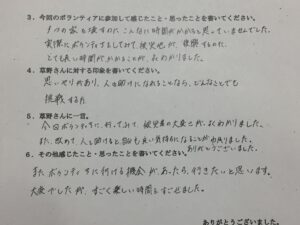 3. 今回のボランティアに参加して感じたこと・思ったことを書いてください。
1つの家を壊すのに、こんなに時間がかかると思っていませんでした。
実際にボランティアをしてみて、被災地が、復興するのに、
とても長い時間がかかることが、よくわかりました。
4. 草野さんに対する印象を書いてください。
思いやりがあり、人を助けになれることなら、どんなことでも
挑戦する方
5. 草野さんに一言。
今回ボランティアに、行ってみて、被災者の大変さが、よくわかりました。
また、改めて、人を助けると自分も良い気持ちになることが分かりました。
ありがとうございました。
6. その他感じたこと・思ったことを書いてください。
またボランティアに行ける機会があったら、行きたいと思います。
大変でしたが、すごく楽しい時間をすごせました。
ありがとうございました。